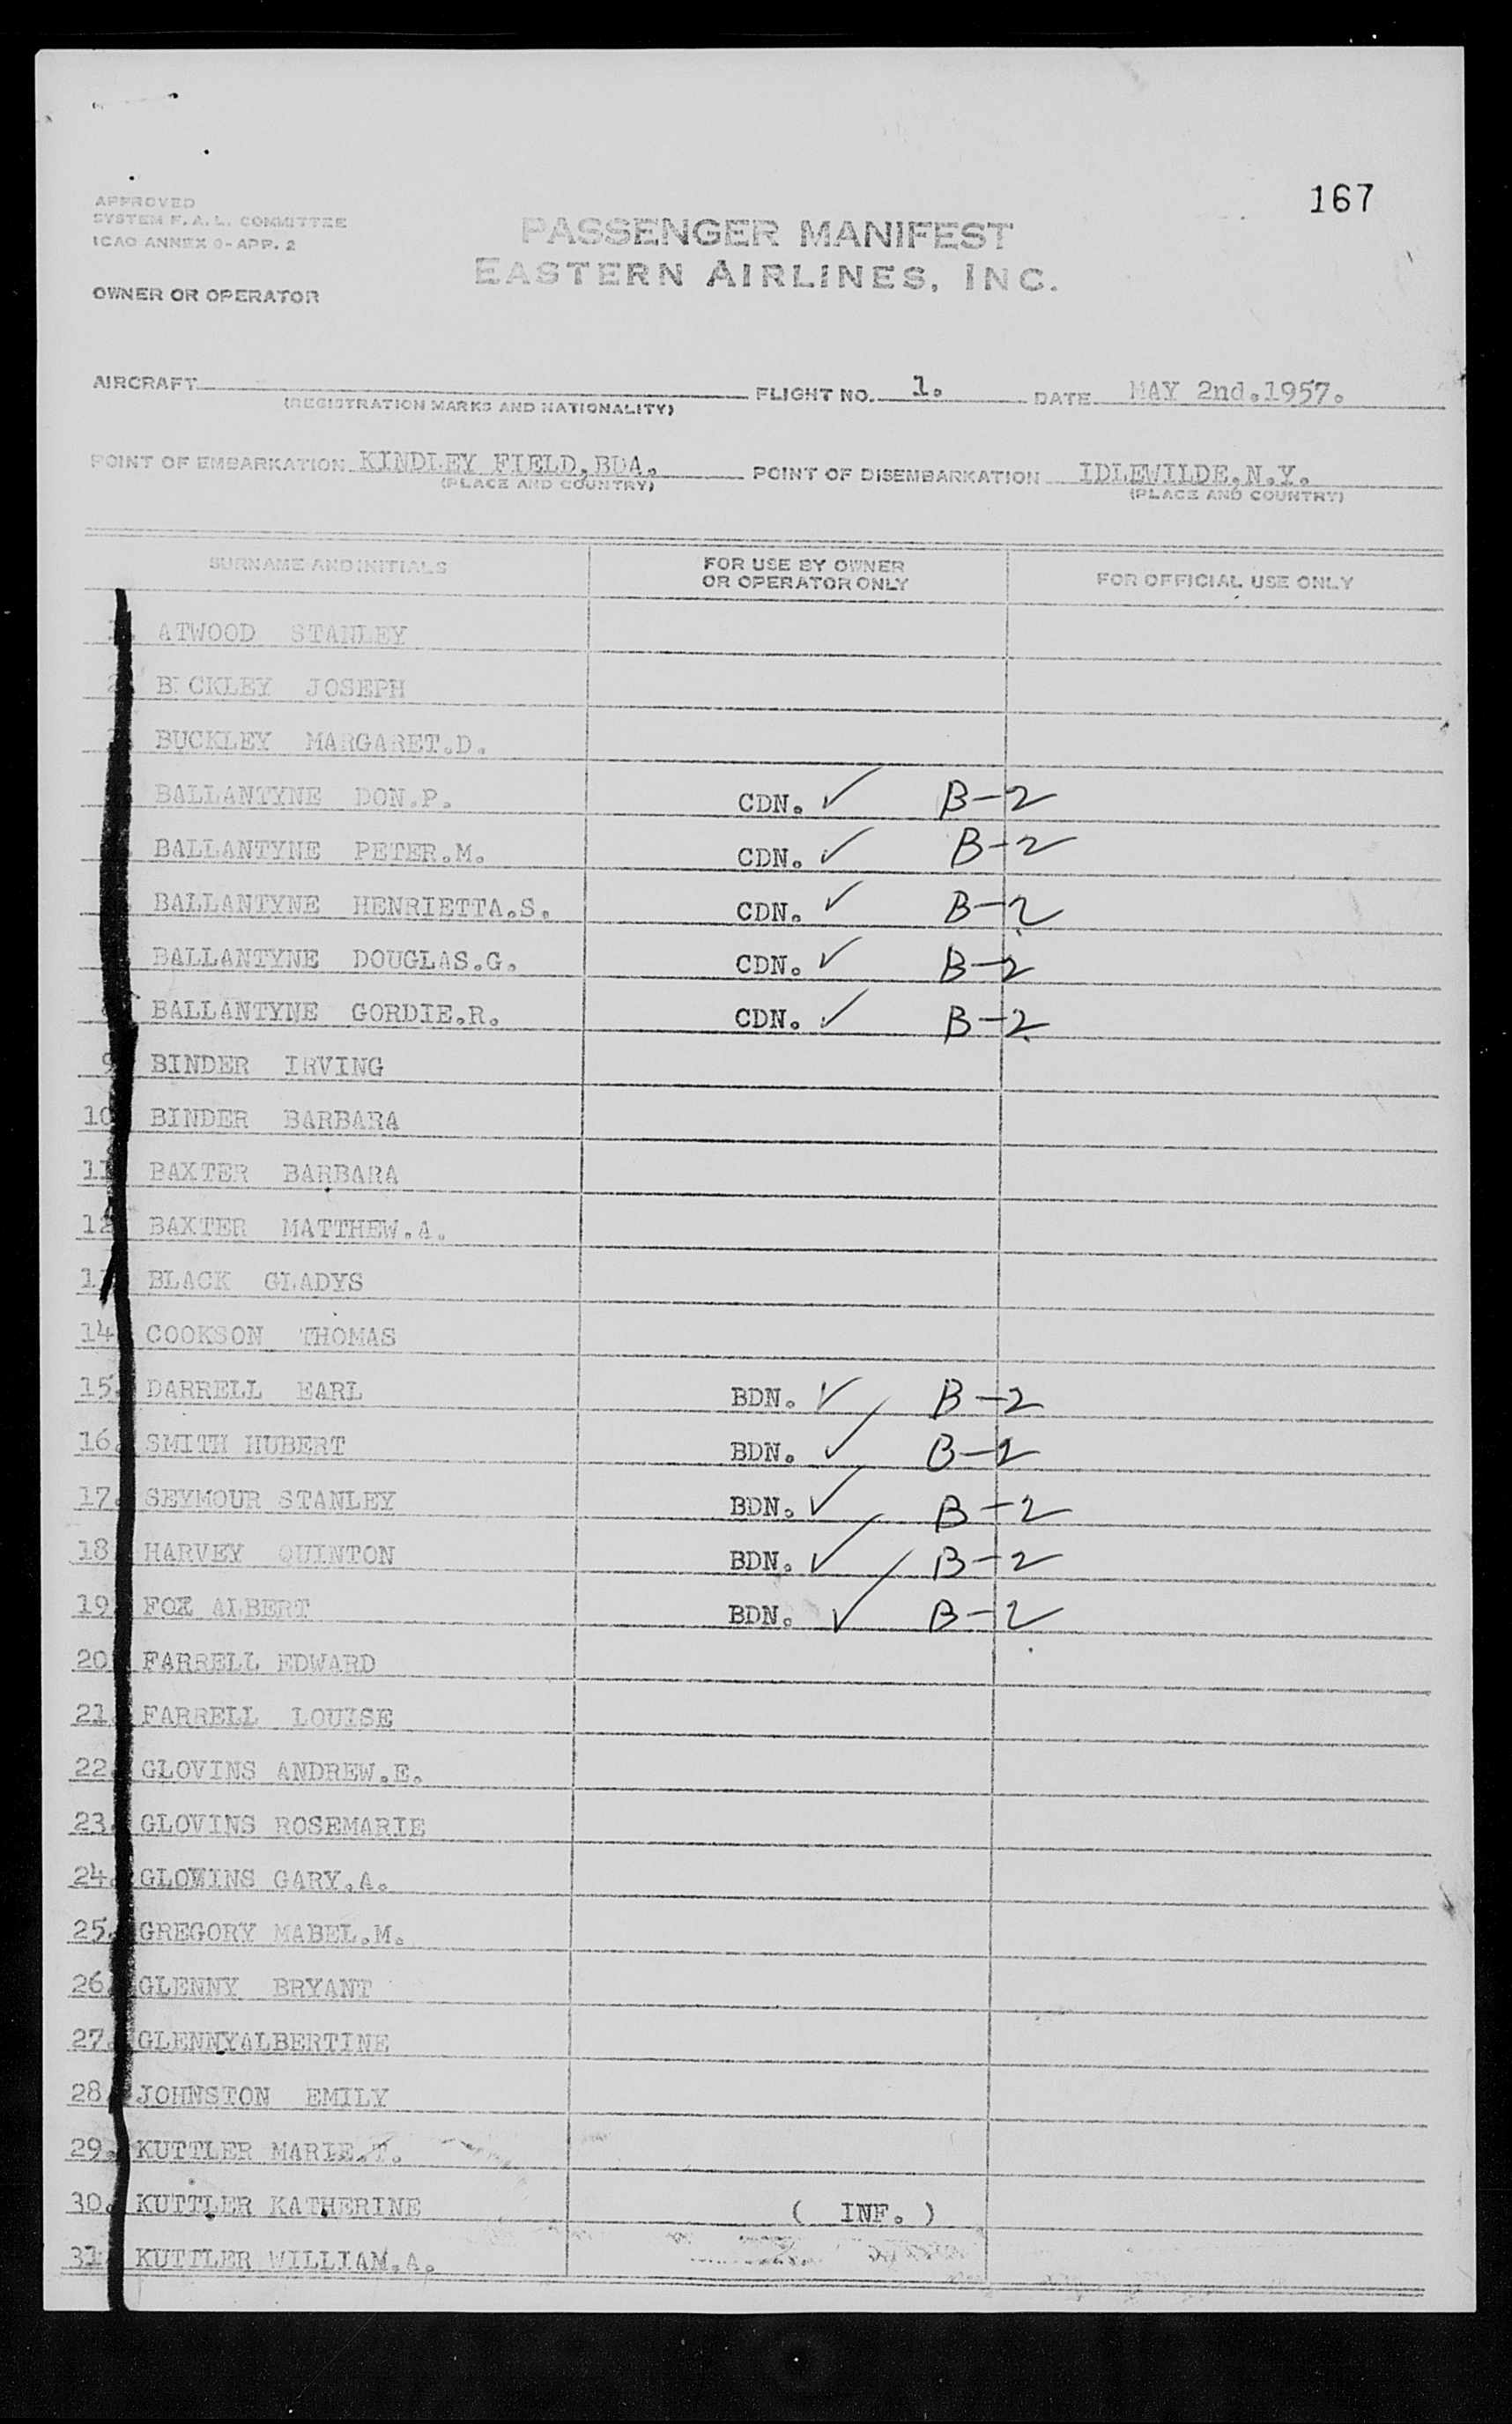 167
APPROVED
SYSTEM F. A. L. COMMITTEE
ICAO ANNEX 9 - APP. 2
PASSENGER MANIFEST
EASTERN AIRLINES, INC.
OWNER OR OPERATOR
AIRCRAFT FLIGHT NO. 1. DATE MAY 2nd.1957.
(REGISTRATION MARKS AND NATIONALITY)
POINT OF EMBARKATION KINDLEY FIELD,BDA. POINT OF DISEMBARKATION IDLEWILDE,N.Y.
(PLACE AND COUNTRY) (PLACE AND COUNTRY)
SURNAME AND INITIALS FOR USE BY OWNER OR OPERATOR ONLY FOR OFFICIAL USE ONLY
ATWOOD STANLEY
2. B CKLEY JOSEPH
BUCKLEY MARGARET.D.
BALLANTYNE DON.P. CDN. ✓ B-2
BALLANTYNE PETER.M. CDN. ✓ B-2
BALLANTYNE HENRIETTA.S. CDN. ✓ B-2
BALLANTYNE DOUGLAS.G. CDN. ✓ B-2
BALLANTYNE GORDIE.R. CDN. ✓ B-2
9 BINDER IRVING
10 BINDER BARBARA
11 BAXTER BARBARA
12 BAXTER MATTHEW.A.
13 BLACK GLADYS
14 COOKSON THOMAS
15. DARRELL EARL BDN. ✓ B-2
16. SMITH HUBERT BDN. ✓ B-2
17. SEYMOUR STANLEY BDN. ✓ B-2
18 HARVEY QUINTON BDN. ✓ B-2
19. FOX ALBERT BDN. ✓ B-2
20. FARRELL EDWARD
21. FARRELL LOUISE
22. GLOVINS ANDREW.E.
23. GLOVINS ROSEMARIE
24. GLOWINS GARY.A.
25. GREGORY MABEL.M.
26. GLENNY BRYANT
27. GLENNYALBERTINE
28. JOHNSTON EMILY
29. KUTTLER MARIE.T.
30. KUTTLER KATHERINE ( INF. )
31 KUTTLER WILLIAM.A.